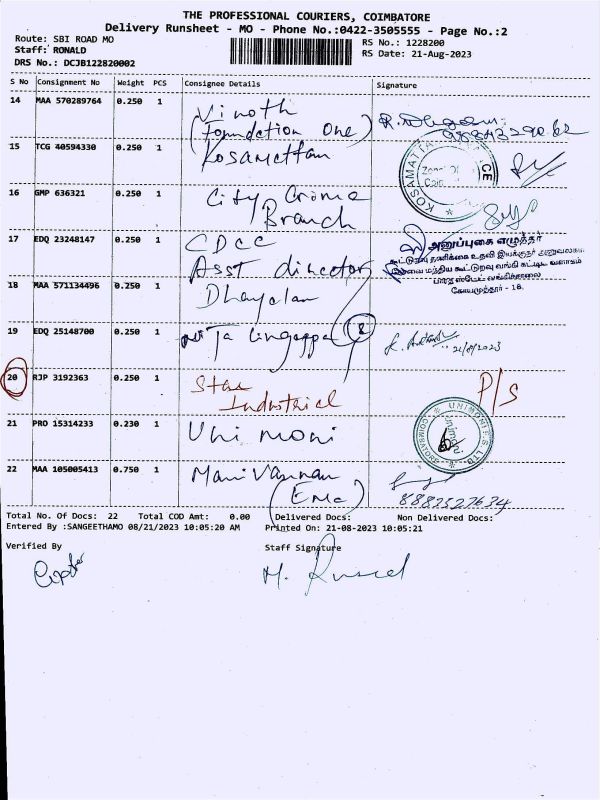 THE PROFESSIONAL COURIERS, COIMBATORE
Delivery Runsheet - MO - Phone No.:0422-3505555 - Page No.:2
Route: SBI ROAD MO
RS No.: 1228200
Staff: RONALD
RS Date: 21-Aug-2023
DRS No.: DCJB122820002
S No Consignment No Weight PCS Consignee Details Signature
14 MAA 570289764 0.250 1 Vinoth
(foundation One)
15 TCG 40594330 0.250 1 Kosamattam
KOSAMATTA
16 GMP 636321 0.250 1 City Crime
Branch
17 EDQ 23248147 0.250 1 CDCC
Asst director
அனுப்புகை எழுத்தர்
கூட்டுறவு தணிக்கை உதவி இயக்குநர் அலுவலகம்
கோவை மத்திய கூட்டுறவு வங்கி கட்டிட வளாகம்
கோயமுத்தூர் - 18.
18 MAA 571134496 0.250 1 Dhayalan
19 EDQ 25148700 0.250 1 Ta Lingappa 8
21/8/2023
20 RJP 3192363 0.250 1 Star
Industrial
P/S
21 PRO 15314233 0.230 1 Uni moni
UNIMONI
COIMBATORE
22 MAA 105005413 0.750 1 Manivannan
(EMC)
8883527634
Total No. Of Docs: 22 Total COD Amt: 0.00 Delivered Docs: Non Delivered Docs:
Entered By :SANGEETHAMO 08/21/2023 10:05:20 AM Printed On: 21-08-2023 10:05:21
Verified By Staff Signature